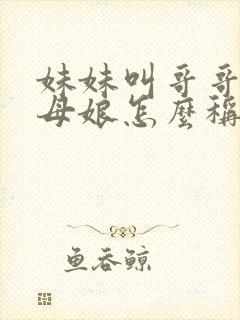 妹妹叫哥哥
母娘怎麼稱
鱼吞鲸